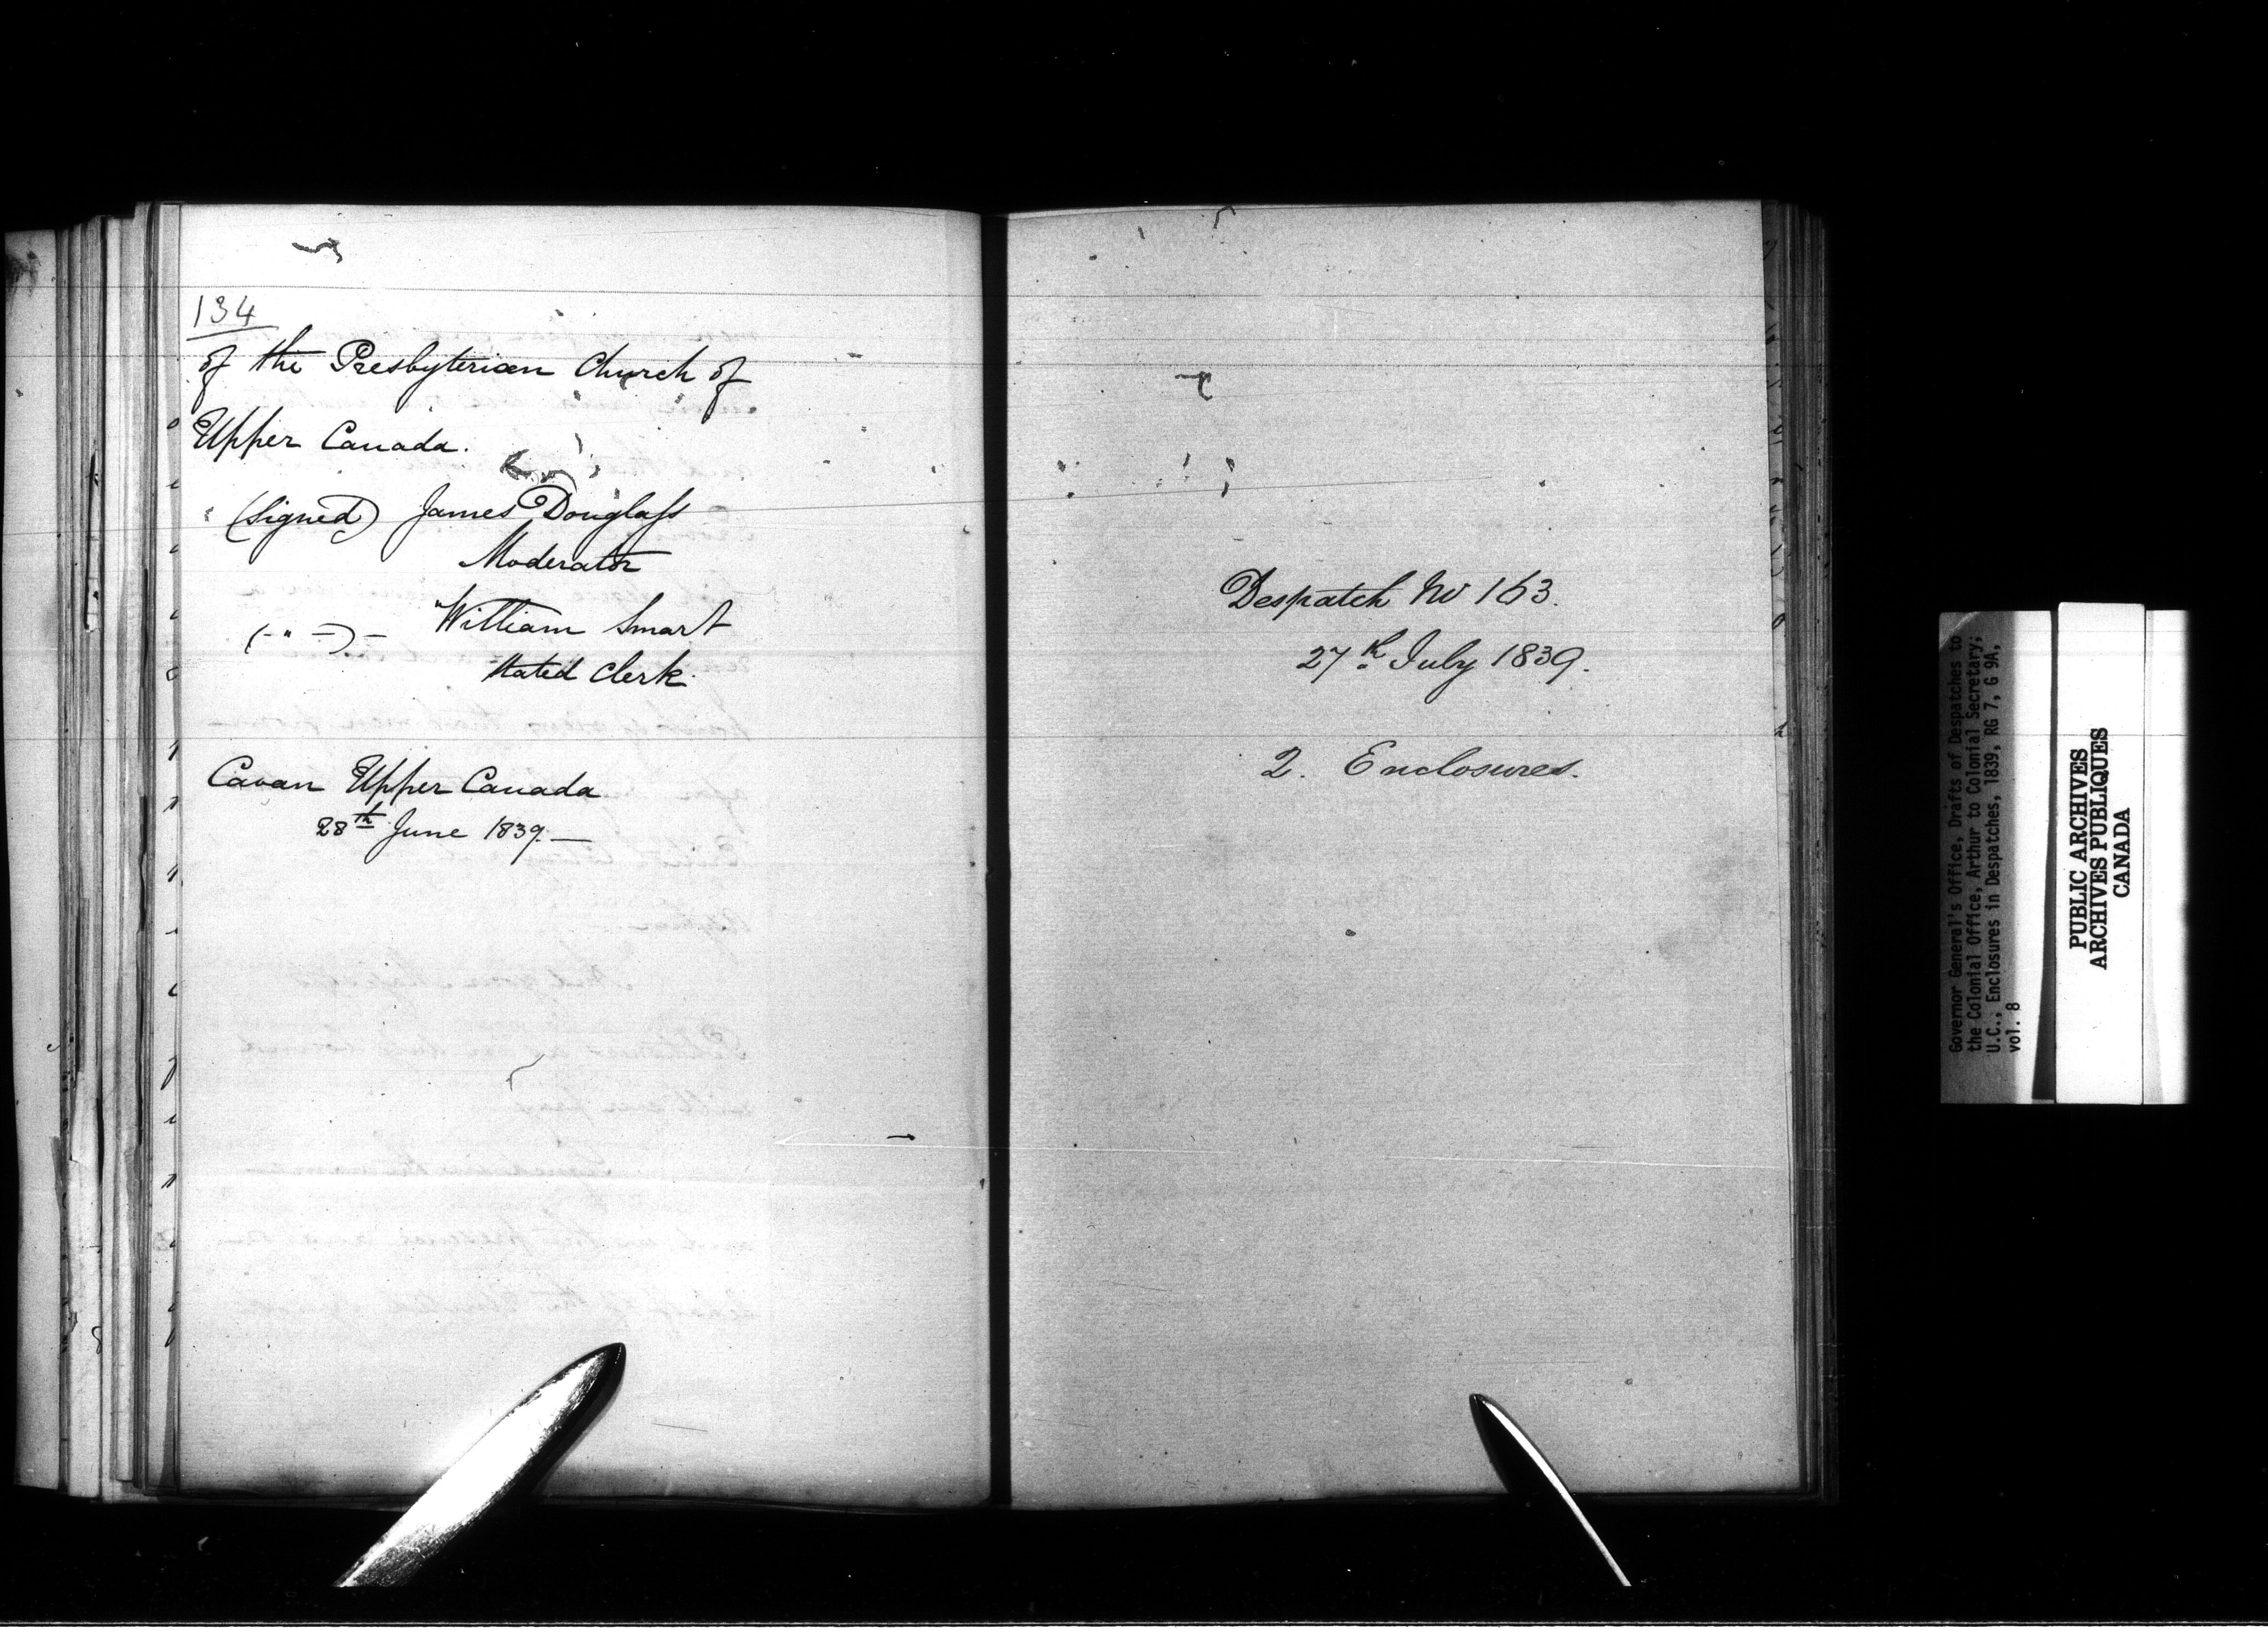 134
of the Presbyterian Church of
Upper Canada.
(Signed) James Douglass
Moderator
(-"-)- William Smart
Stated Clerk.
Cavan Upper Canada
28th June 1839.—
Despatch No 163.
27th July 1839.
2. Enclosures.
Governor General's Office, Drafts of Despatches to
the Colonial Office, Arthur to Colonial Secretary;
U.C., Enclosures in Despatches, 1839, RG 7, G 9A,
vol. 8
PUBLIC ARCHIVES
ARCHIVES PUBLIQUES
CANADA